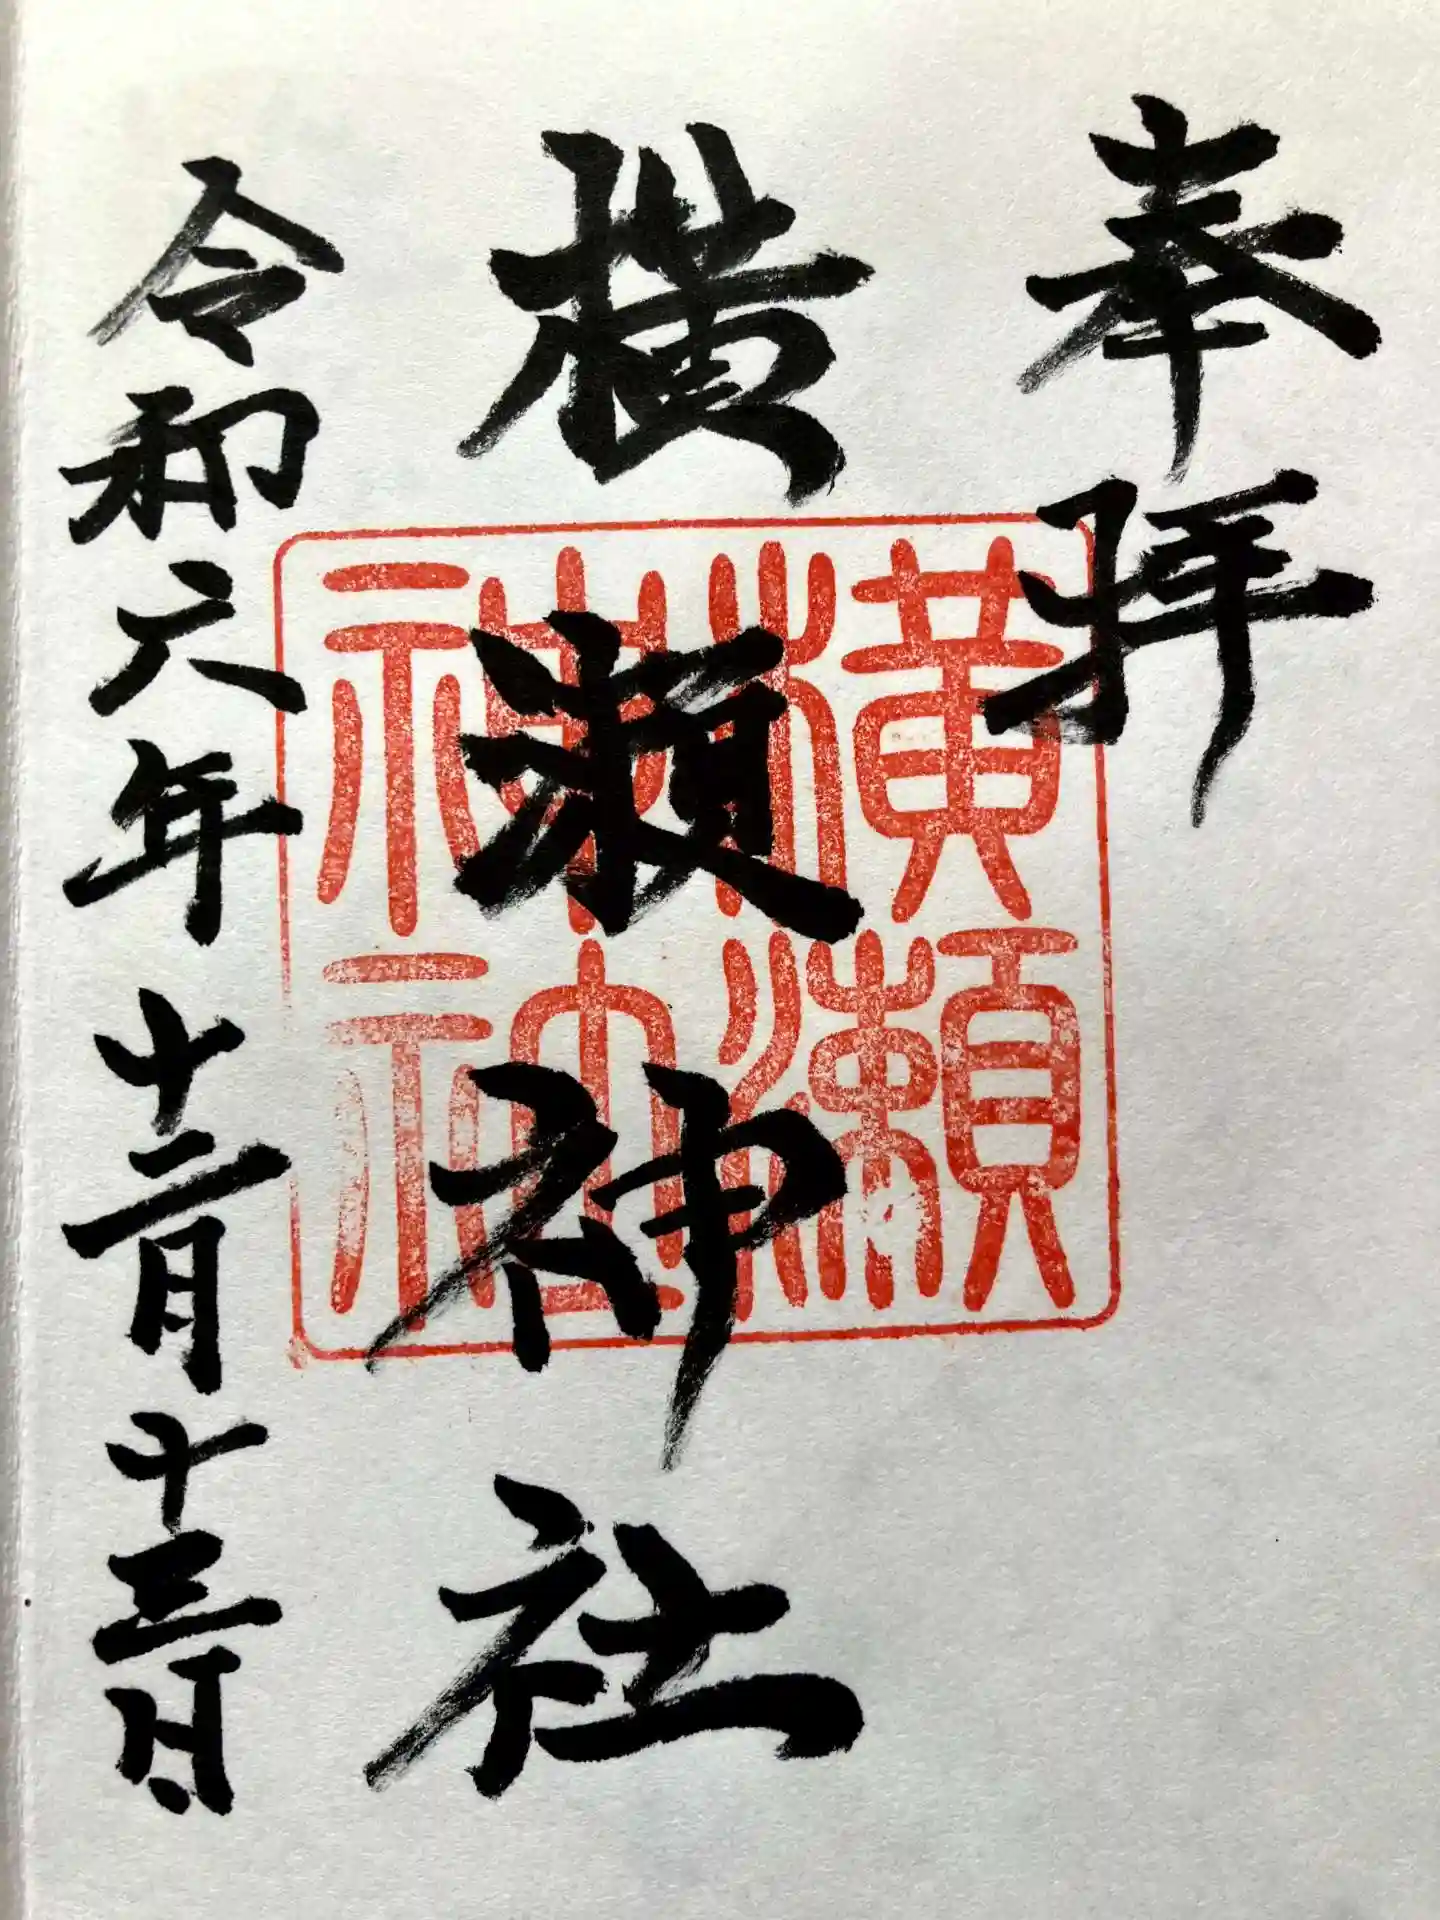 奉拝
横瀬神社
横瀬
神社
令和六年十二月十三日